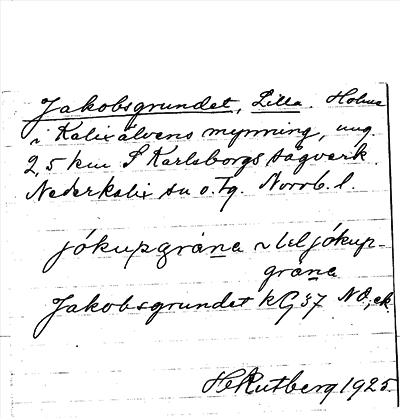 Jakobsgrundet, Lilla. Holme
i Kalixälvens mynning, ung.
2,5 km S Karlsborgs sågverk.
Nederkalix sn o. tg. Norrb. l.
jókupgràna ~ liljókup-
gràna
Jakobsgrundet kG 37 NO, ek.
H Rutberg 1925.